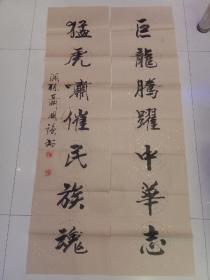 巨龍騰躍中華志
猛虎嘯催民族魂